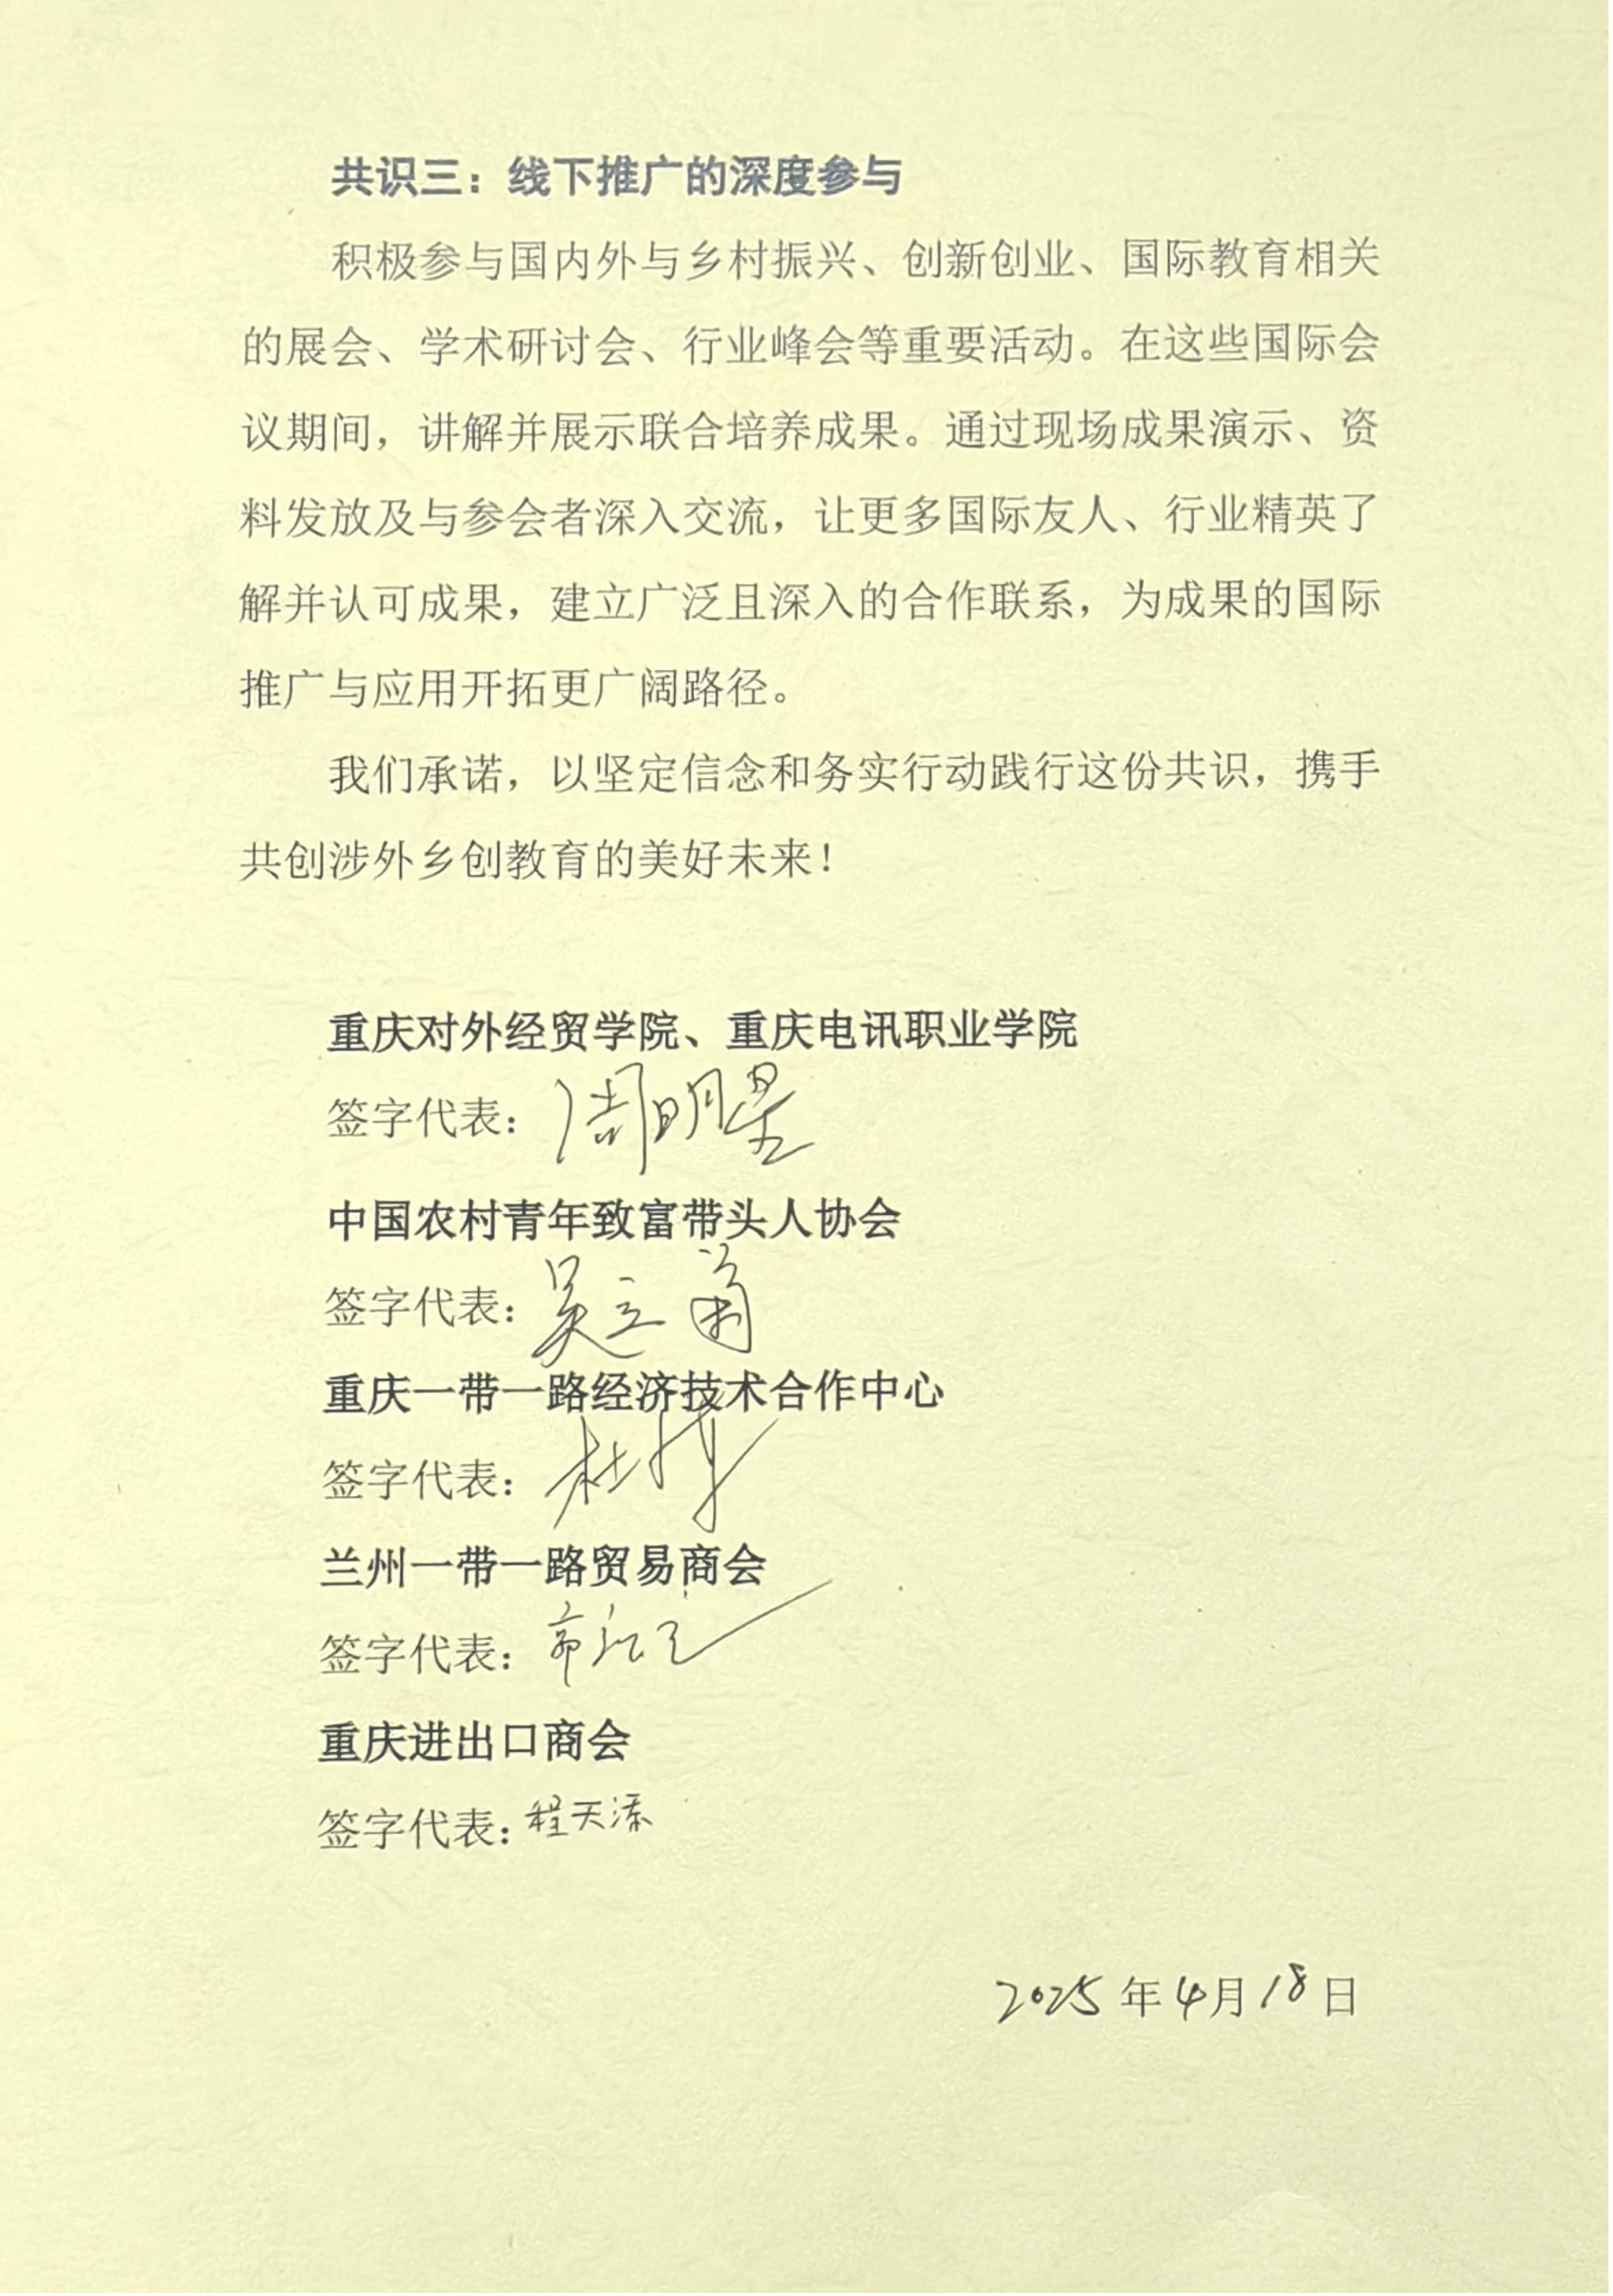 共识三：线下推广的深度参与
积极参与国内外与乡村振兴、创新创业、国际教育相关
的展会、学术研讨会、行业峰会等重要活动。在这些国际会
议期间，讲解并展示联合培养成果。通过现场成果演示、资
料发放及与参会者深入交流，让更多国际友人、行业精英了
解并认可成果，建立广泛且深入的合作联系，为成果的国际
推广与应用开拓更广阔路径。
我们承诺，以坚定信念和务实行动践行这份共识，携手
共创涉外乡创教育的美好未来！
重庆对外经贸学院、重庆电讯职业学院
签字代表：周明星
中国农村青年致富带头人协会
签字代表：吴立
重庆一带一路经济技术合作中心
签字代表：杜
兰州一带一路贸易商会
签字代表：
重庆进出口商会
签字代表：程天添
2025年4月18日